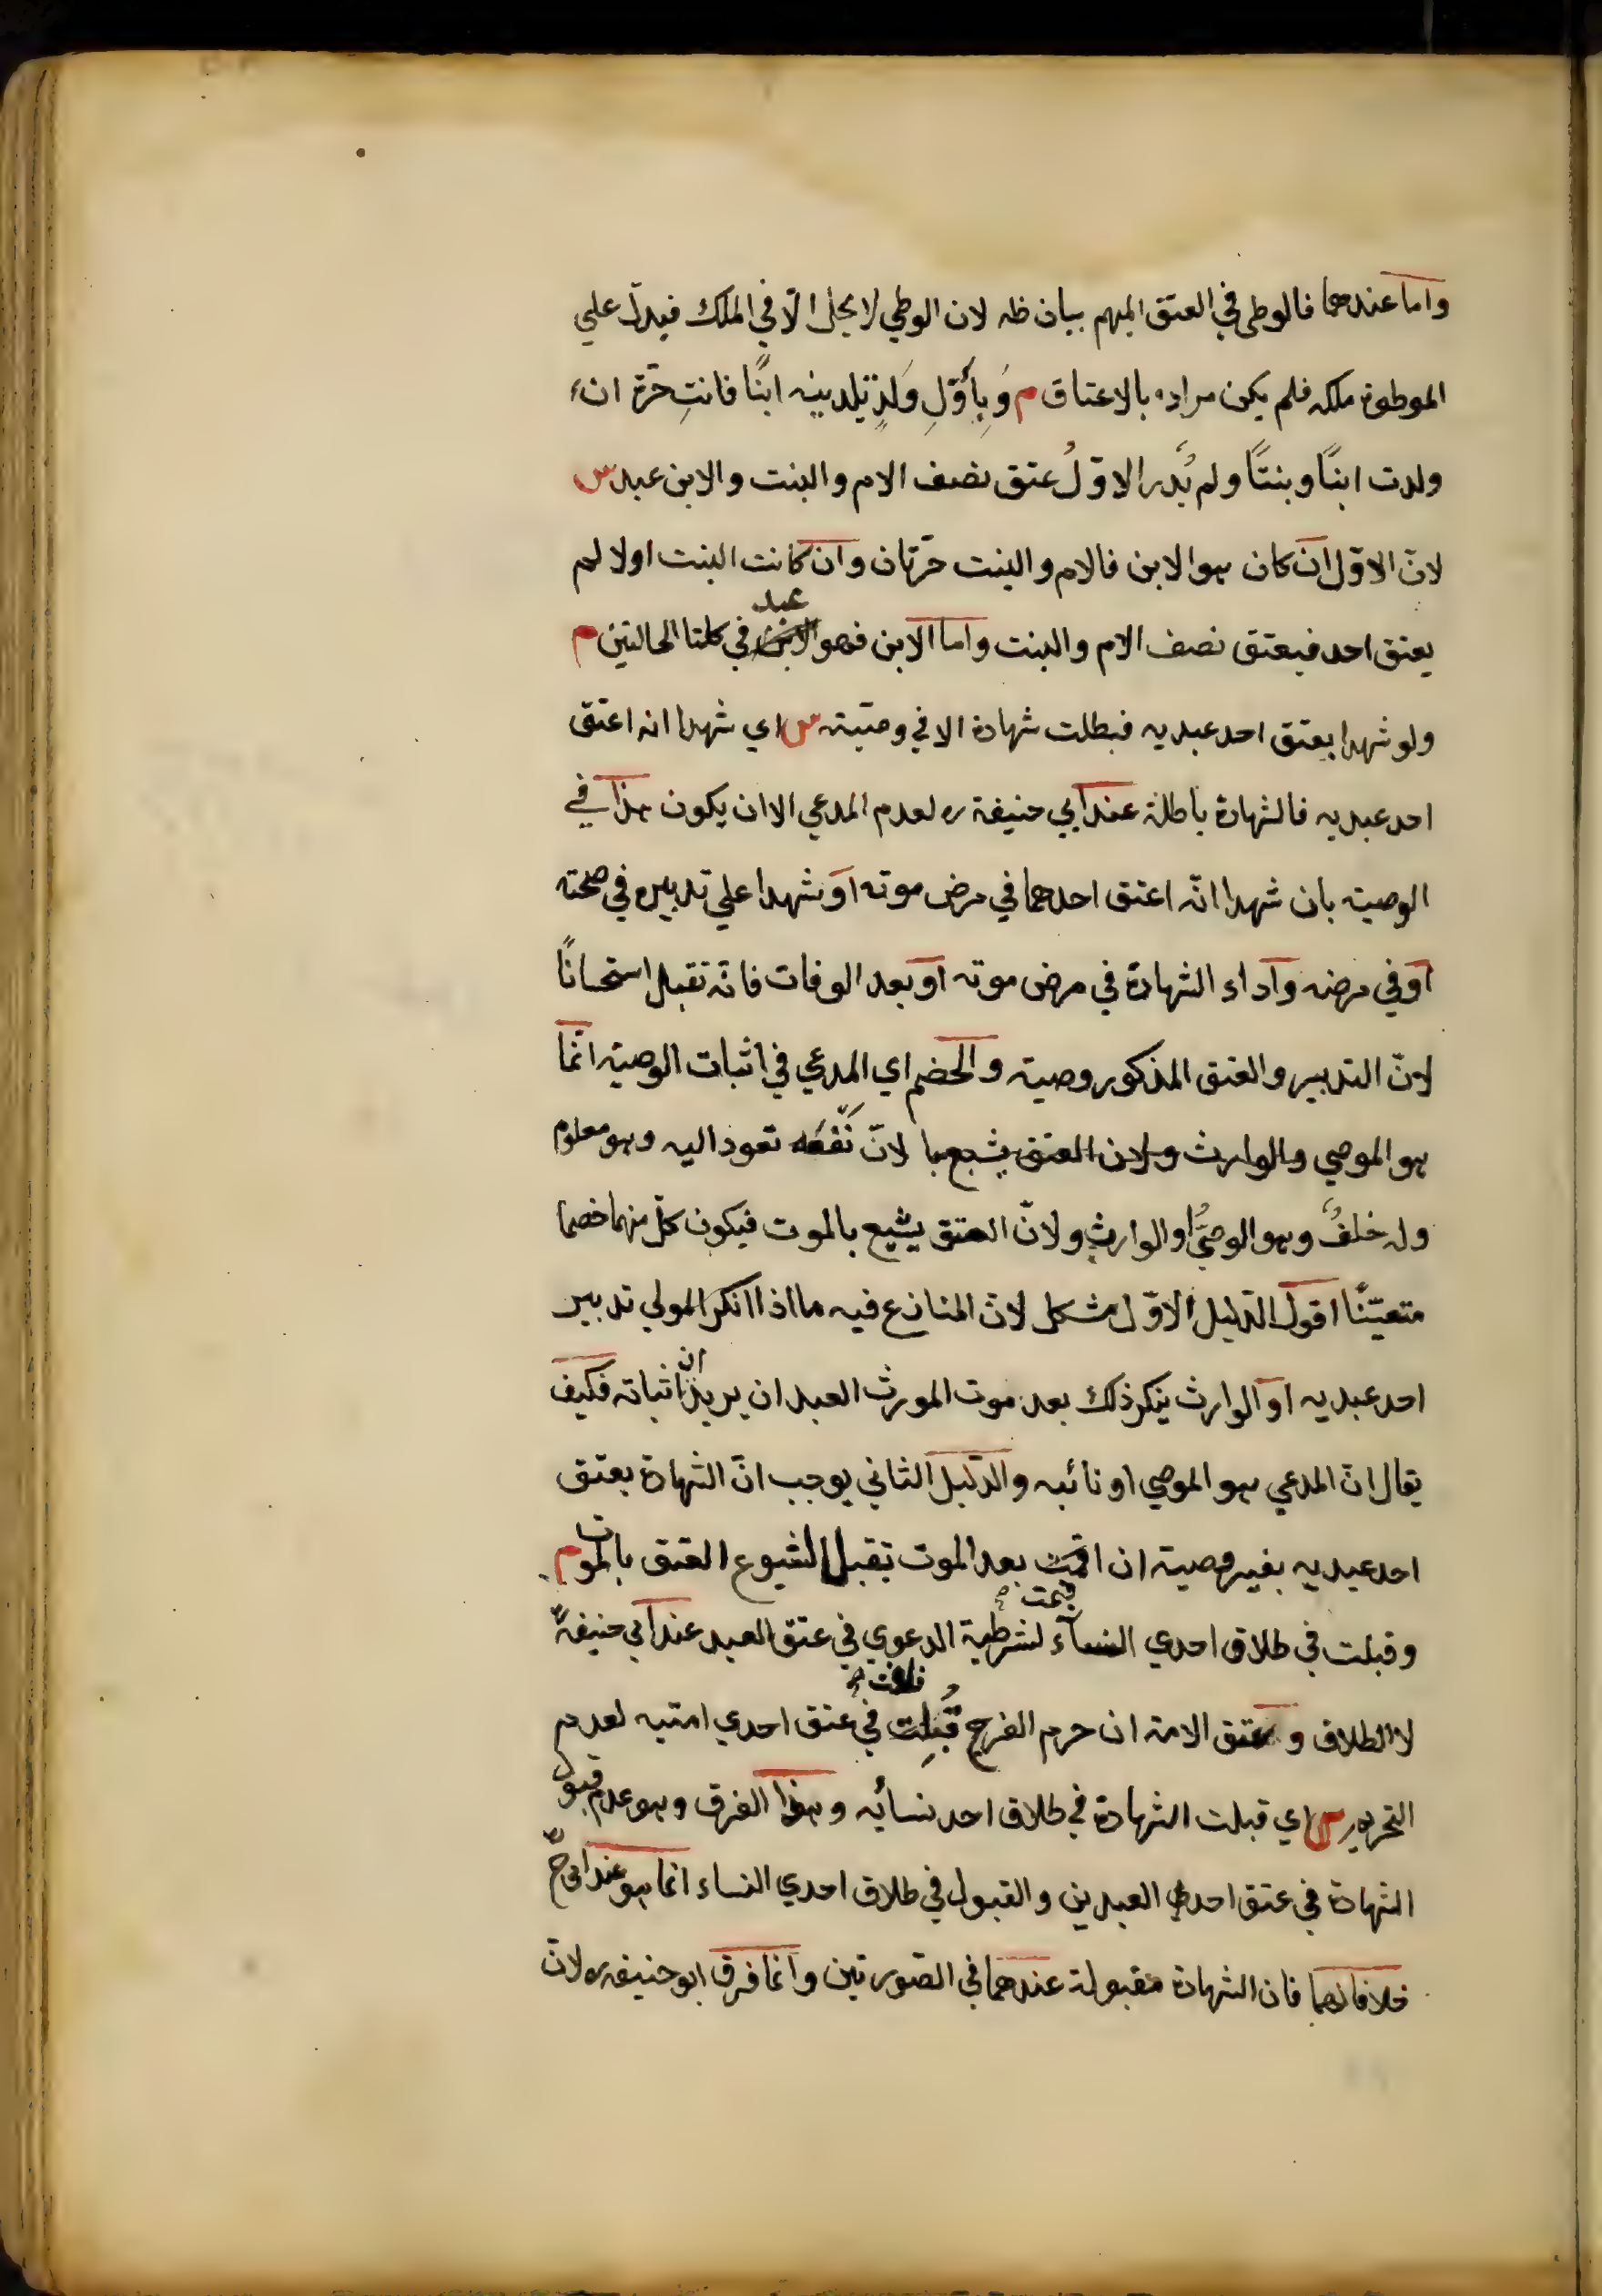 واما عندهما فالوطى في العتق المبهم بيان ظه لان الوطي لا يحل الّا في الملك فيدلّ علي
الموطوة ملكه فلم يكن مراده بالاعتاق م وَبِأَوّلِ وَلَدٍ تلدينه ابنًا فانتِ حرّة ان
ولدت ابنًا وبنتًا ولم يُدر الاوّلُ عتق نصف الام والبنت والابن عبد س
لانّ الاوّل ان كان هو الابن فالام والبنت حرّتان وان كانت البنت اولا لم
يعتق احد فيعتق نصف الام والبنت واما الابن فهو عبد في كلتا الحالتين م
ولو شهدا بعتق احد عبديه فبطلت شهادة الا في وصيّته س اي شهدا انه اعتق
احد عبديه فالشهادة باطلة عند ابي حنيفة ره لعدم المدعي الا ان يكون هذا في
الوصية بان شهدا انّه اعتق احدهما في مرض موته او شهدا علي تدبيره في صحته
او في مرضه واداء الشهادة في مرض موته او بعد الوفات فانّه تقبل استحسانًا
لانّ التدبير والعتق المذكور وصية والخصم اي المدعي في اثبات الوصية انّما
هو الموصي والوارث ولان العتق يشيع بها لانّ نَفْعَه تعود اليه وهو معلوم
وله خلفٌ وهو الوصيُّ او الوارث ولانّ العتق يشيع بالموت فيكون كلّ منهما خصما
متعيّنًا اقول الدّليل الاوّل مشكل لانّ المنازع فيه ما اذا انكر المولي تدبير
احد عبديه او الوارث ينكر ذلك بعد موت المورث العبد ان يريد ان اثباته فكيف
يقال انّ المدعي هو الموصي او نائبه والدّليل الثاني يوجب انّ الشهادة بعتق
احد عبديه بغير وصية ان اقيمت بعد الموت تقبل لشيوع العتق بالموت م
وقبلت في طلاق احدي النساء لشرطية الدعوي في عتق العبد عند ابي حنيفة رح
لا الطلاق وعتق الامة ان حرم الفرج قُبِلت في عتق احدي امتيه لعدم
التحريم س اي قبلت الشهادة في طلاق احد نسائه وهذا الفرق وهو عدم قبول
الشهادة في عتق احدي العبدين والقبول في طلاق احدي النساء انما هو عند ابي ح رح
خلافا لهما فان الشهادة مقبولة عندهما في الصّورتين وانّما فرق ابو حنيفه ره لانّ